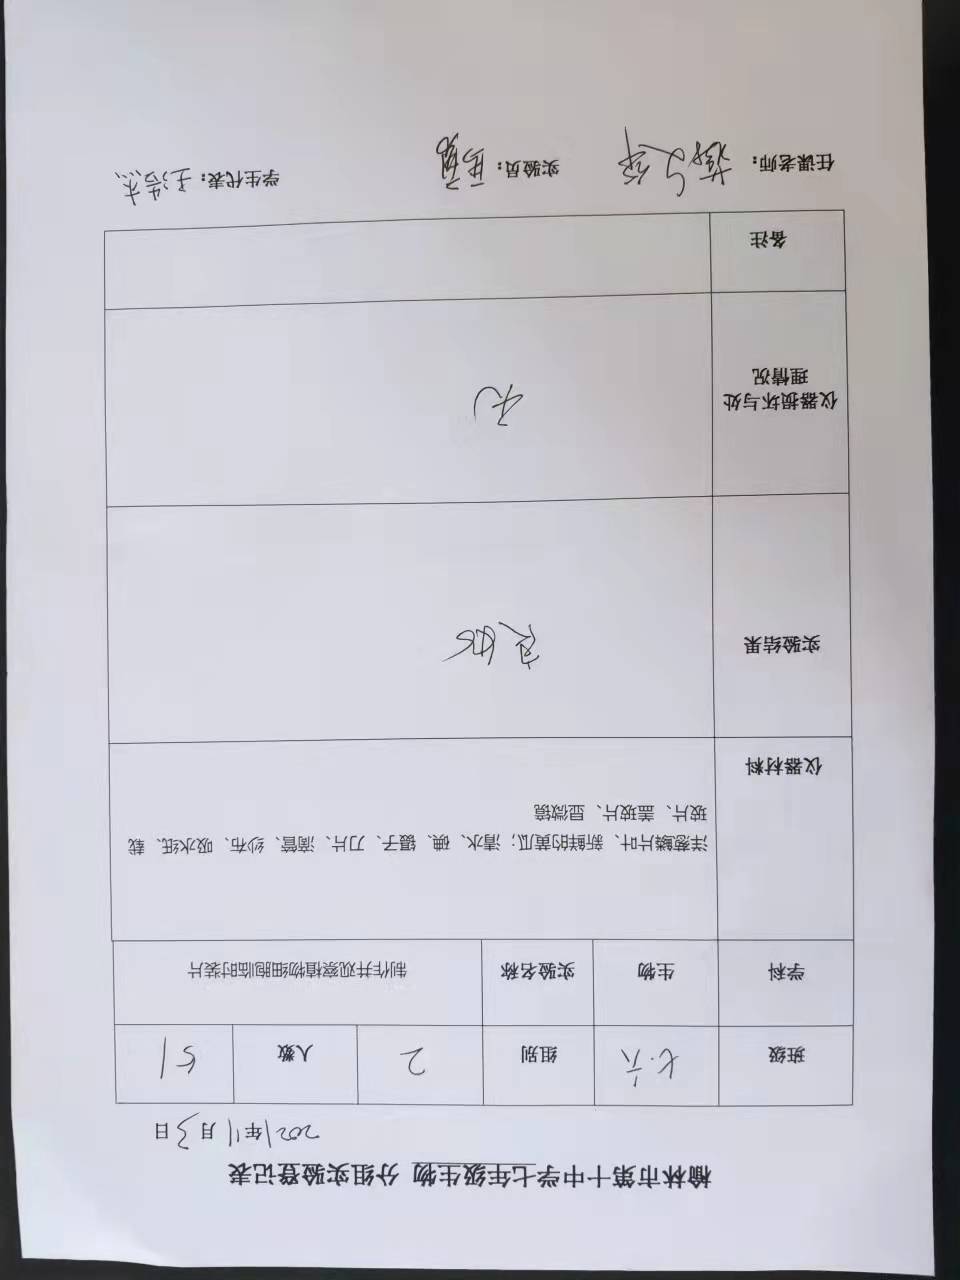 榆林市第十中学七年级生物 分组实验登记表
2021年11月3日
班级 七.六 组别 2 人数 51
学科 生物 实验名称 制作并观察植物细胞临时装片
仪器材料
洋葱鳞片叶、新鲜的黄瓜；清水、碘、镊子、刀片、滴管、纱布、吸水纸、载
玻片、盖玻片、显微镜
实验结果 良好
仪器损坏与处
理情况
无
备注
任课老师： 实验员： 学生代表：王浩杰